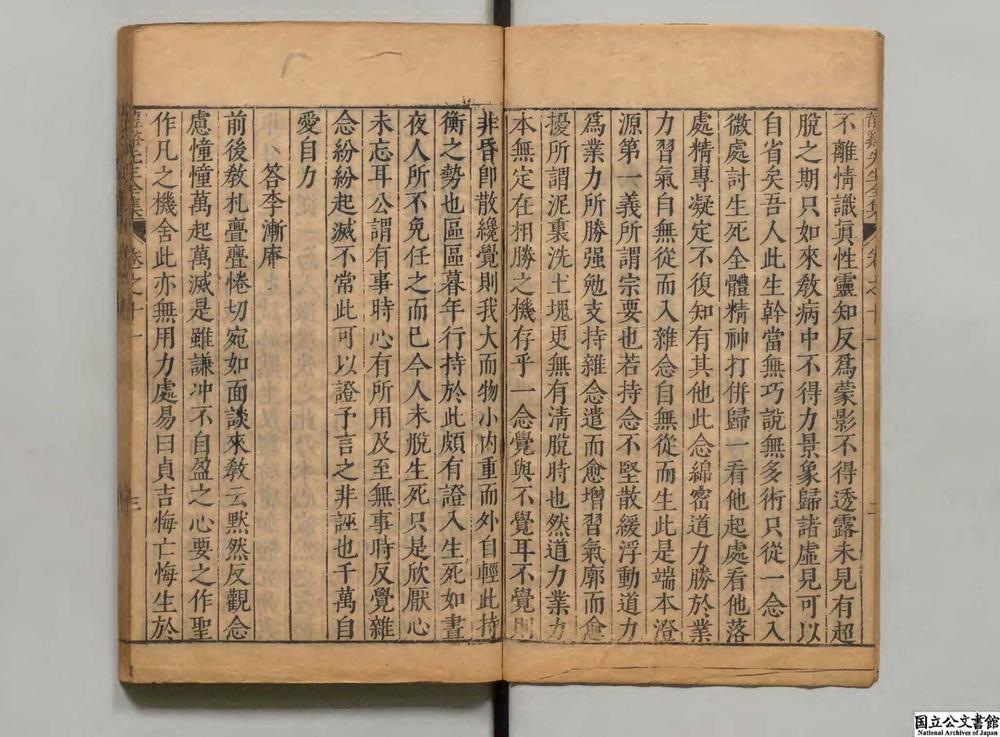 不離情識眞性靈知反爲蒙影不得透露未見有超
脫之期只如來敎病中不得力景象歸諸虛見可以
自省矣吾人此生幹當無巧說無多術只從一念入
微處討生死全體精神打併歸一看他起處看他落
處精專凝定不復知有其他此念綿密道力勝於業
力習氣自無從而入雜念自無從而生此是端本澄
源第一義所謂宗要也若持念不堅散緩浮動道力
爲業力所勝强勉支持雜念遣而愈增習氣廓而愈
擾所謂泥裏洗土塊更無有清脫時也然道力業力
本無定在相勝之機存乎一念覺與不覺耳不覺則
非昏卽散纔覺則我大而物小內重而外自輕此持
衡之勢也區區暮年行持於此頗有證入生死如晝
夜人所不免任之而已今人未脫生死只是欣厭心
未忘耳公謂有事時心有所用及至無事時反覺雜
念紛紛起滅不常此可以證予言之非誣也千萬自
愛自力
答李漸庵
前後敎札亹亹惓切宛如面談來敎云默然反觀念
慮憧憧萬起萬滅是雖謙冲不自盈之心要之作聖
作凡之機舍此亦無用力處易曰貞吉悔亡悔生於
龍谿先生全集 卷之十一 三
国立公文書館
National Archives of Japan